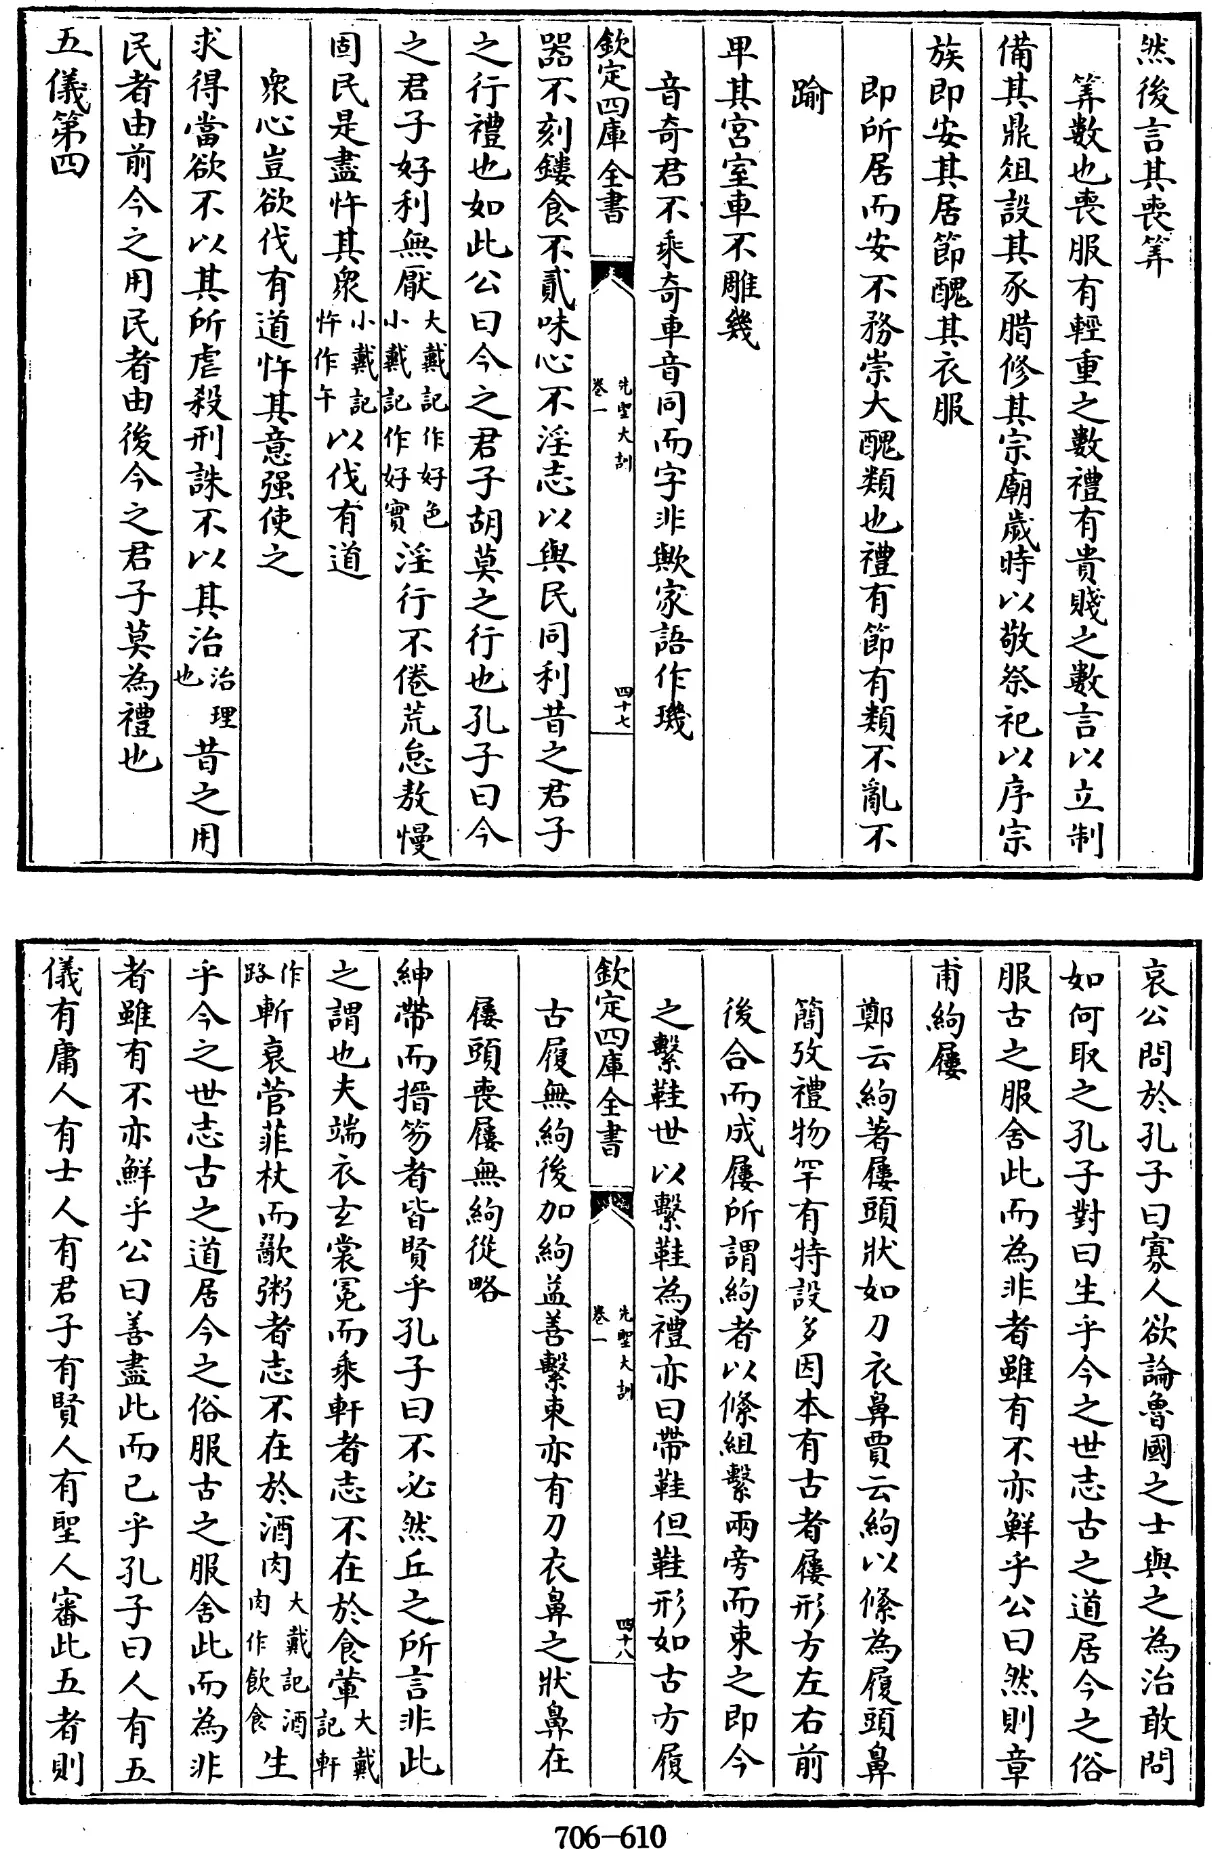 然後言其喪筭
筭數也喪服有輕重之數禮有貴賤之數言以立制
備其鼎俎設其豕腊修其宗廟歲時以敬祭祀以序宗
族即安其居節醜其衣服
即所居而安不務崇大醜類也禮有節有類不亂不
踰
卑其宮室車不雕幾
音奇君不乘奇車音同而字非歟家語作璣
欽定四庫全書 先聖大訓 卷一 四十七
器不刻鏤食不貳味心不淫志以與民同利昔之君子
之行禮也如此公曰今之君子胡莫之行也孔子曰今
之君子好利無厭大戴記作好色小戴記作好實淫行不倦荒怠敖慢
固民是盡忤其衆小戴記忤作午以伐有道
衆心豈欲伐有道忤其意强使之
求得當欲不以其所虐殺刑誅不以其治治理也昔之用
民者由前今之用民者由後今之君子莫為禮也
五儀第四
哀公問於孔子曰寡人欲論魯國之士與之為治敢問
如何取之孔子對曰生乎今之世志古之道居今之俗
服古之服舍此而為非者雖有不亦鮮乎公曰然則章
甫絇屨
鄭云絇著屨頭狀如刀衣鼻賈云絇以絛為履頭鼻
簡攷禮物罕有特設多因本有古者屨形方左右前
後合而成屨所謂絇者以絛組繫兩旁而束之即今
之繫鞋世以繫鞋為禮亦曰帶鞋但鞋形如古方履
欽定四庫全書 先聖大訓 卷一 四十八
古履無絇後加絇益善繫束亦有刀衣鼻之狀鼻在
屨頭喪屨無絇從略
紳帶而搢笏者皆賢乎孔子曰不必然丘之所言非此
之謂也夫端衣玄裳冕而乘軒者志不在於食葷大戴記軒
作路斬衰菅菲杖而歠粥者志不在於酒肉大戴記酒肉作飲食生
乎今之世志古之道居今之俗服古之服舍此而為非
者雖有不亦鮮乎公曰善盡此而已乎孔子曰人有五
儀有庸人有士人有君子有賢人有聖人審此五者則
706-610